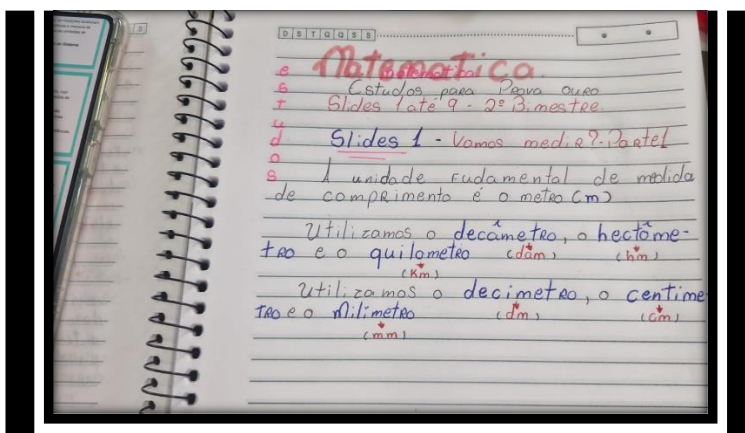 D S T Q Q S S
Matematica
estudos
Estudos para Prova ouro
Slides 1 até 9 - 2º Bimestre
Slides 1 - Vamos medir? - Parte1
A unidade fudamental de medida
de comprimento é o metro (m)
Utilizamos o decâmetro, o hectôme-
tro e o quilometro (dam) (hm)
(Km)
Utilizamos o decimetro, o centime
tro e o Milimetro (dm) (cm)
(mm)